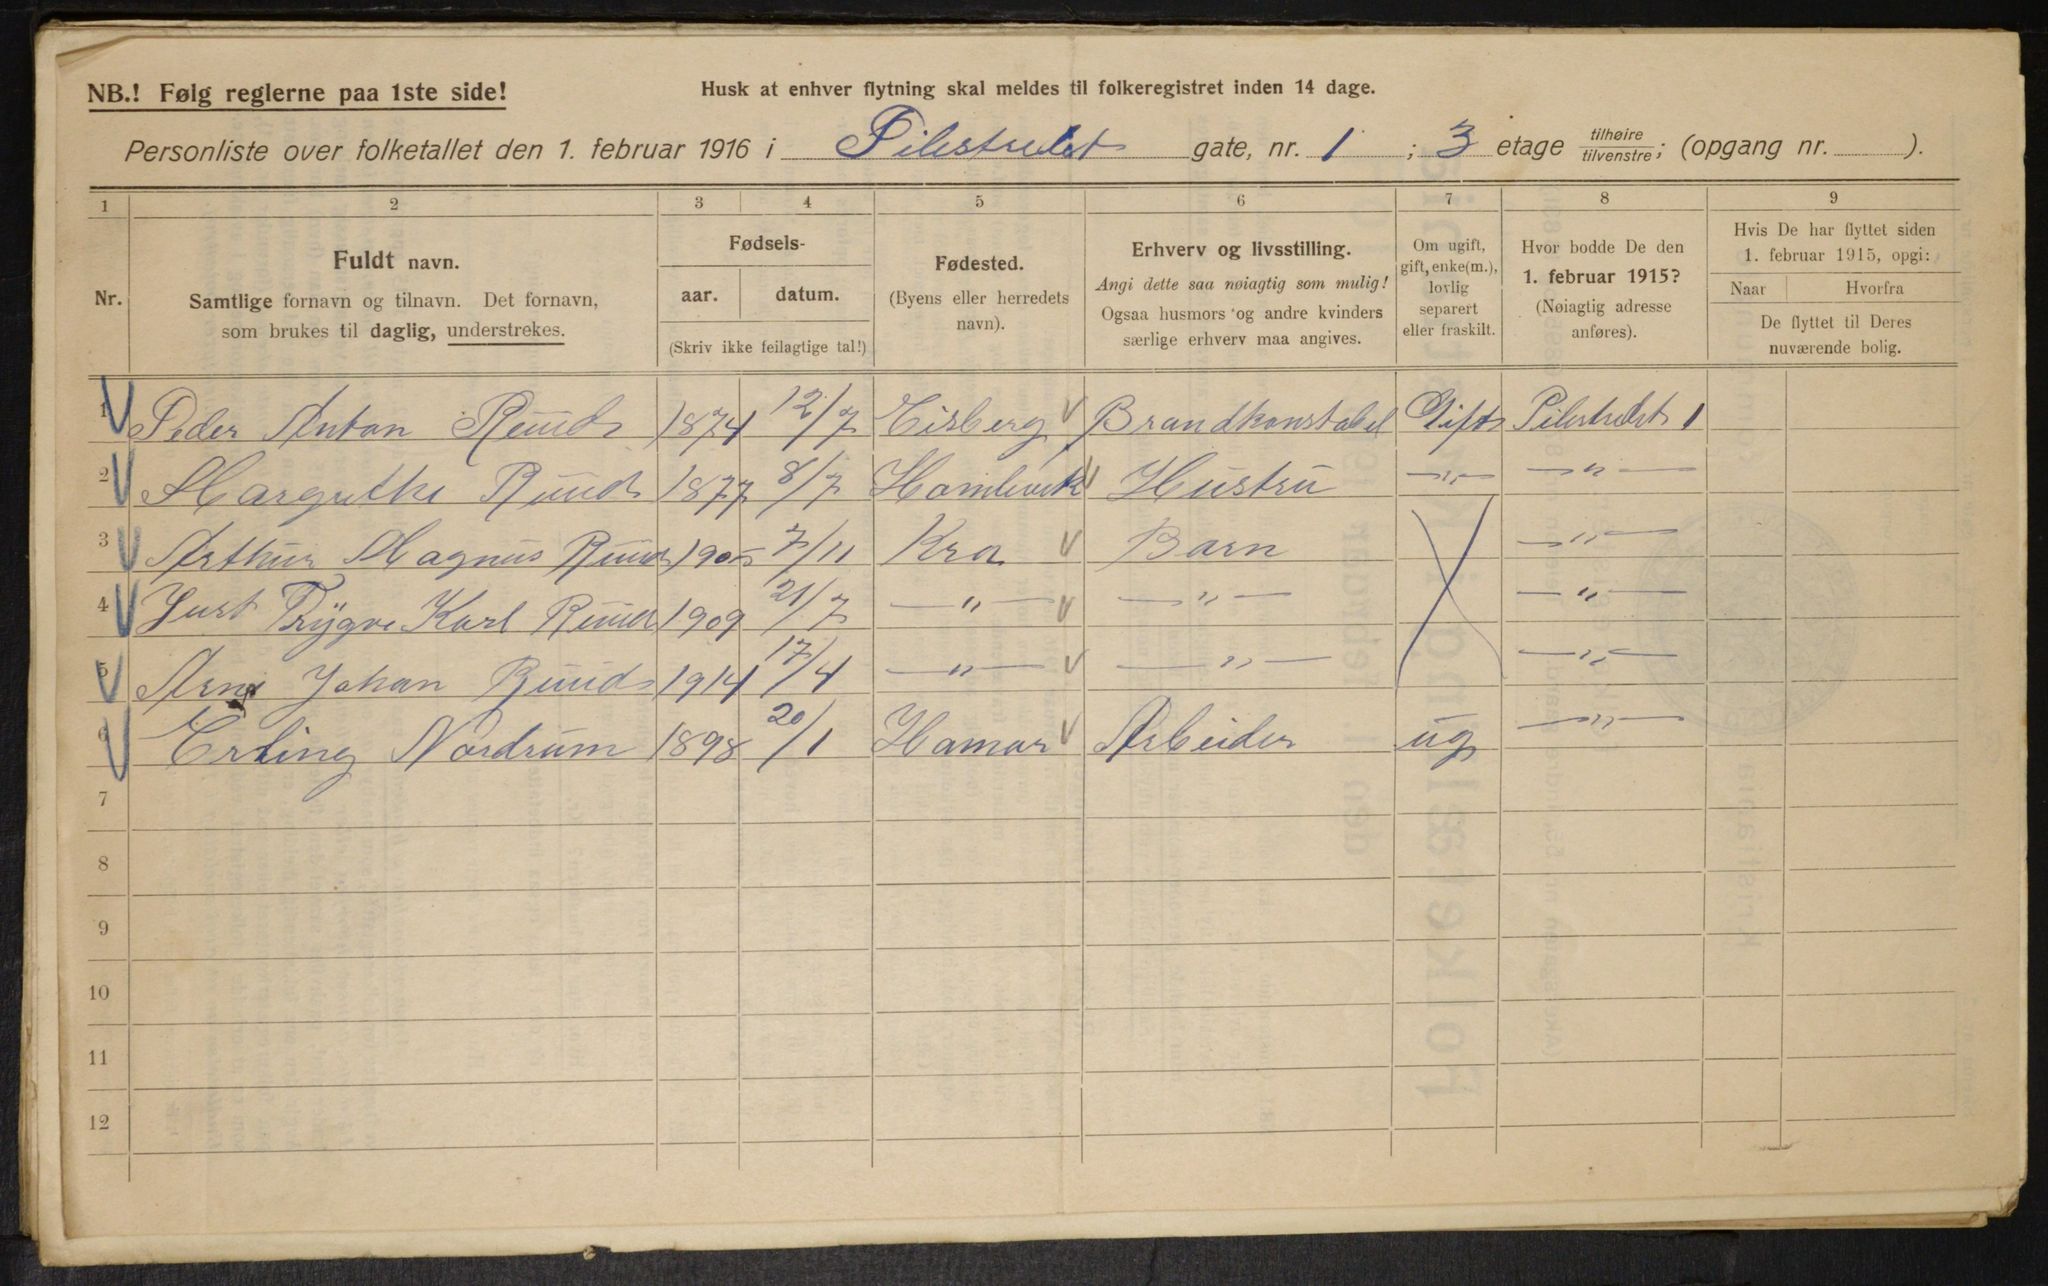 NB.! Følg reglerne paa 1ste side!
Husk at enhver flytning skal meldes til folkeregistret inden 14 dage.
Personliste over folketallet den 1. februar 1916 i Pilestredet gate, nr. 1 ; 3 etage tilhøire/tilvenstre; (opgang nr. ).
1 2 3 4 5 6 7 8 9
Nr.
Fuldt navn.
Samtlige fornavn og tilnavn. Det fornavn,
som brukes til daglig, understrekes.
Fødsels-
aar. datum.
(Skriv ikke feilagtige tal!)
Fødested.
(Byens eller herredets
navn).
Erhverv og livsstilling.
Angi dette saa nøiagtig som mulig!
Ogsaa husmors og andre kvinders
særlige erhverv maa angives.
Om ugift,
gift, enke(m.),
lovlig
separert
eller fraskilt.
Hvor bodde De den
1. februar 1915?
(Nøiagtig adresse
anføres).
Hvis De har flyttet siden
1. februar 1915, opgi:
Naar Hvorfra
De flyttet til Deres
nuværende bolig.
1 Peder Anton Ruud 1874 12/7 Eisberg Brandkonstabel Gift Pilestredet 1
2 Margrethe Ruud 1877 8/7 Hustru —„— —„—
3 Arthur Magnus Ruud 1905 7/11 Kra Barn —„—
4 Just Trygve Karl Ruud 1909 21/7 —„— —„— —„—
5 Arne Johan Ruud 1914 17/4 —„— —„— —„—
6 Erling Nordrum 1898 20/1 Hamar Arbeider ug —„—
7
8
9
10
11
12